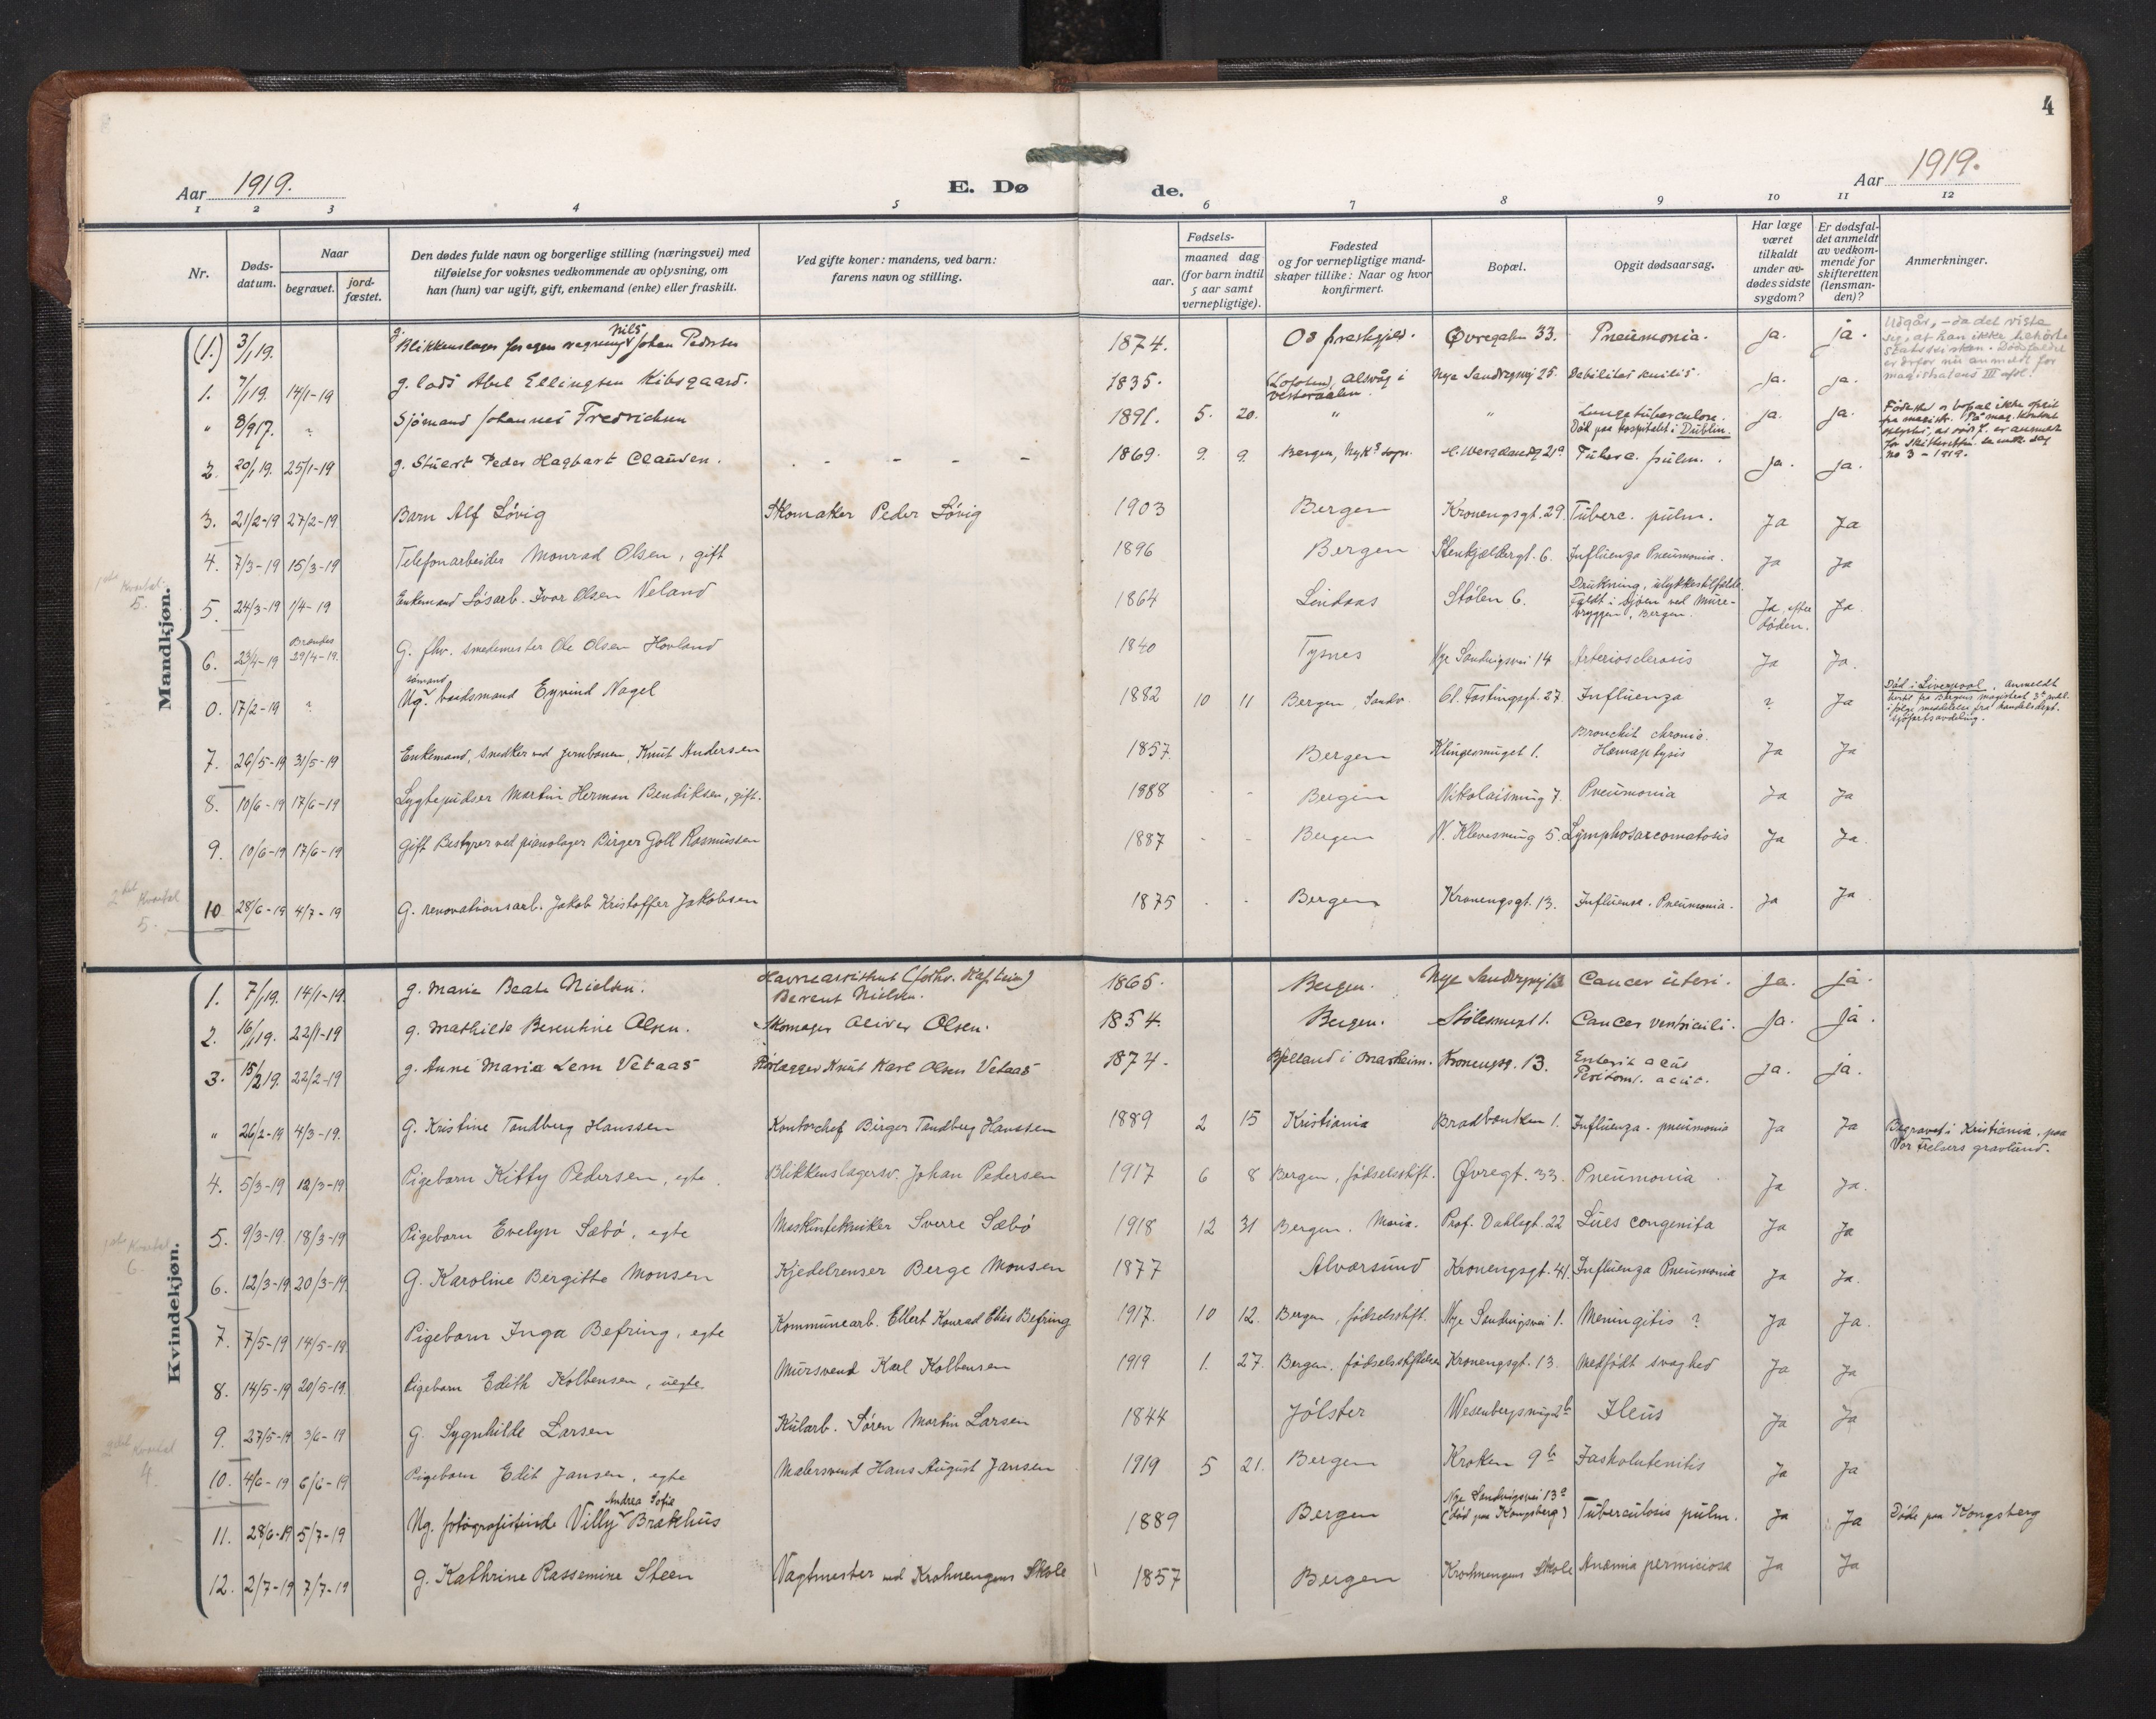 4
Aar 1919. E. Dø de. Aar 1919.
1 2 3 4 5 6 7 8 9 10 11 12
Nr.
Døds-
datum.
Naar
begravet.
jord-
fæstet.
Den dødes fulde navn og borgerlige stilling (næringsvei) med
tilføielse for voksnes vedkommende av oplysning, om
han (hun) var ugift, gift, enkemand (enke) eller fraskilt.
Ved gifte koner: mandens, ved barn:
farens navn og stilling.
Fødsels-
aar.
maaned dag
(for barn indtil
5 aar samt
vernepligtige).
Fødested
og for vernepligtige mand-
skaper tillike: Naar og hvor
konfirmert.
Bopæl.
Opgit dødsaarsag.
Har læge
været
tilkaldt
under av-
dødes sidste
sygdom?
Er dødsfal-
det anmeldt
av vedkom-
mende for
skifteretten
(lensman-
den)?
Anmerkninger.
Mandkjøn.
(1.) 3/1 19. g. Blikkenslager for egen regning Nils Johan Pedersen 1874. Os Øvregaten 33. Pneumonia. ja. ja.
Utgår, - da det viste
sig, at han ikke tilhørte
statskirken. Dødsfaldet
er derfor nu anmeldt for
magistratens III afd.
1. 7/1 19. 14/1-19 g. lods Abel Ellingsen Kibsgaard. 1835. (Lofoten), Alsvåg i Vesteraalen. Nye Sandvigsvej 25. Debilitas senilis. ja. ja.
" 8/9 17. ? Sjømand Johannes Fredrichsen 1891. 5. 20. " " Lungetuberculose. Død paa hospitalet i Dublin. ja. ja.
no 3 - 1919.
2. 20/1 19. 25/1-19 g. Stuert Peder Hagbart Clausen. - - - - 1869. 9. 9. Bergen, Nyk. sogn. 21a Tuberc. pulm. ja. ja.
3. 21/2-19 27/2-19 Barn Alf Løvig Skomaker Peder Løvig 1903 Bergen Kronengsgt. 29 Tuberc. pulm. Ja Ja
4. 7/3-19 15/3-19 Telefonarbeider Monrad Olsen, gift 1896 Bergen Stenkjeldergt. 6. Influenza Pneumonia. Ja Ja
1ste Kvartal
5.
5. 24/3-19 1/4-19 Enkemand Løsarb. Ivar Olsen Veland 1864 Lindaas Stølen 6. Drukning, ulykkestilfælde, Faldt i sjøen ved Mure-bryggen, Bergen. Ja, efter døden. Ja.
6. 23/4-19 Brændes 29/4-19. G. fhv. smedemester Ole Olsen Hovland 1840 Tysnes Nye Sandvigsvei 14 Arteriosclerosis Ja Ja.
0. 17/2-19 ? Ug. sømand baadsmand Eyvind Nagel 1882 10 11 Bergen, Sandv. Cl. Fastingsgt. 27. Influenza ? Ja
Død i Liverpool, anmeldt
hertil fra Bergens magistrat 3die avdl.
ifølge meddelelse fra handelsdept.
sjøfartsavdeling.
7. 26/5-19 31/5-19 Enkemand, snedker ved jernbanen, Knut Andersen 1857. Bergen Klingesmuget 1. Bronchit chronic. Hæmoptysis Ja Ja
8. 10/6-19 17/6-19 Lygtepudser Martin Herman Bendiksen, gift. 1888 - - Bergen Nikolaismug 7. Pneumonia Ja Ja
9. 10/6-19 17/6-19 Gift Bestyrer ved pianolager Birger Goll Rasmussen 1887 - - Bergen N. Klevesmug 5. Lymphosarcomatosis Ja Ja.
2det Kvartal
5.
10 28/6-19 4/7-19 G. renovationsarb. Jakob Kristoffer Jakobsen 1875 - - Bergen Kronengsgt. 13. Influensa. Pneumonia. Ja Ja.
Kvindekjøn.
1. 7/1 19. 14/1-19. g. Marie Beate Nielsen. Havneassistent (forhv. Kaptein) Berent Nielsen. 1865. Bergen. Nye Sandvigsvej 13 Cancer uteri. Ja. ja.
2. 16/1 19. 22/1-19 g. Mathilde Berentine Olsen. Skomager Oliver Olsen. 1854. Bergen. Stølesmuget 1. Cancer ventriculi. Ja. ja.
3. 15/2 19. 22/2-19 g. Anne Maria Lem Vetaas Rørlægger Knut Karl Olsen Vetaas 1874. Bjelland i Onarheim. Kronengsg. 13. Enterit acut Peritonit. acut. ja. ja.
" 26/2-19 4/3-19. G. Kristine Tandberg Hanssen Kontorchef Birger Tandberg Hanssen 1889 2 15 Kristiania Bradbænken 1. Influenza - pneumonia Ja Ja Begravet i Kristiania, paa Vor Frelsers gravlund.
4. 5/3-19 12/3-19 Pigebarn Kitty Pedersen, egte. Blikkenslagersv. Johan Pedersen 1917 6 8 Bergen, fødselsstift. Øvregt. 33. Pneumonia Ja Ja.
5. 9/3-19. 18/3-19 Pigebarn Evelyn Sæbø, egte Maskintekniker Sverre Sæbø 1918 12 31 Bergen. Maria. Prof. Dahlsgt. 22 Lues congenita Ja Ja
1ste Kvartal
6.
6. 12/3-19 20/3-19. G. Karoline Bergitte Monsen Kjedelrenser Berge Monsen 1877 Alversund Kronengsgt. 41. Influenza Pneumonia Ja Ja.
7. 7/5-19 14/5-19 Pigebarn Inga Befring, egte Kommunearb. Ellert Konrad Elias Befring 1917. 10 12. Bergen, fødselsstift. Nye Sandvigsvei 1. Meningitis ? Ja Ja.
8. 14/5-19 20/5-19. Pigebarn Edith Kolbensen, uegte. Mursvend Karl Kolbensen 1919 1. 27. Bergen, fødselsstiftelsen Kronengsgt. 13. Medfødt svaghed Ja Ja
9. 27/5-19 3/6-19 G. Sygnhilde Larsen Kularb. Søren Martin Larsen 1844 Jølster Wesenbergsmug 2b Ileus Ja Ja
2det Kvartal
4.
10. 4/6-19 6/6-19 Pigebarn Edit Jansen, egte Malersvend Hans August Jansen 1919 5 21. Bergen Kroken 9b Ja Ja
11. 28/6-19 5/7-19 Ug. fotografistinde Villy Andrea Sofie Brækhus 1889 Bergen Nye Sandvigsvei 13a (død paa Kongsberg) Tuberculosis pulm. Ja Ja Døde paa Kongsberg
12. 2/7-19 7/7-19 g. Kathrine Rassemine Steen Vagtmester ved Krohnengens Skole 1857 Bergen Krohnengens Skole Anæmia perniciosa Ja Ja